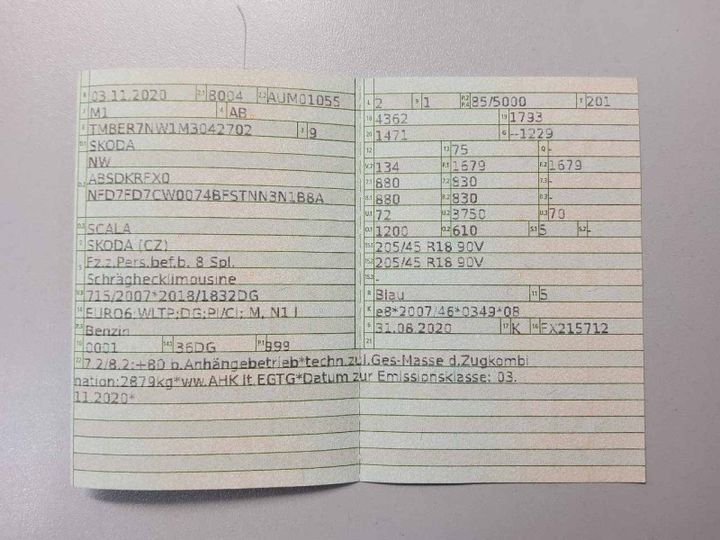 B 03.11.2020 2.1 8004 2.2 AUM01055
J M1 4 AB
E TMBER7NW1M3042702 3 9
D.1 SKODA
NW
D.2 ABSDKRFX0
NFD7FD7CW0074BFSTNN3N1B8A
D.3 SCALA
2 SKODA (CZ)
5 Fz.z.Pers.bef.b. 8 Spl.
Schräghecklimousine
V.9 715/2007*2018/1832DG
14 EURO6;WLTP;DG;PI/CI; M, N1 I
P.3 Benzin
10 0001 14.1 36DG P.1 999
L 2 9 1 P.2 P.4 85/5000 T 201
18 4362 19 1793
20 1471 G --1229
12 13 75 Q -
V.7 134 F.1 1679 F.2 1679
7.1 880 7.2 830 7.3 -
8.1 880 8.2 830 8.3 -
U.1 72 U.2 3750 U.3 70
O.1 1200 O.2 610 S.1 5 S.2 -
15.1 205/45 R18 90V
15.2 205/45 R18 90V
15.3 -
R Blau 11 5
K e8*2007/46*0349*08
6 31.08.2020 17 K 16 FX215712
21
22 7.2/8.2:+80 b.Anhängebetrieb*techn.zul.Ges-Masse d.Zugkombi
nation:2879kg*ww.AHK lt.EGTG*Datum zur Emissionsklasse: 03.
11.2020*